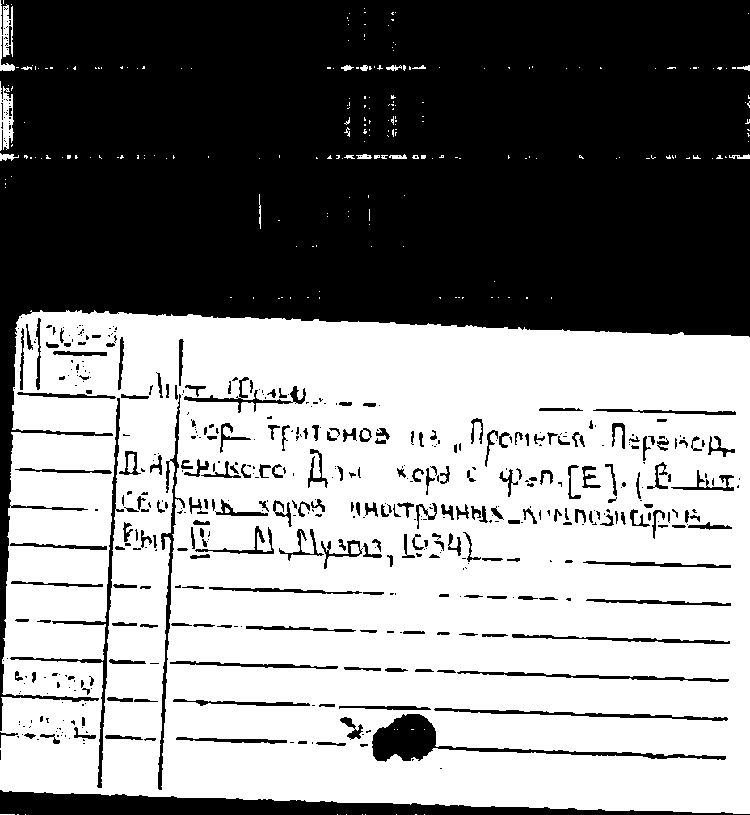 М 263-3
Лист, Франц.
Хор тритонов из „Прометея“ Перевод
П. Аренского. Для хора с ф-п. [Е]. (В кн:
Сборник хоров иностранных композиторов.
Вып. IV М., Музгиз, 1934)